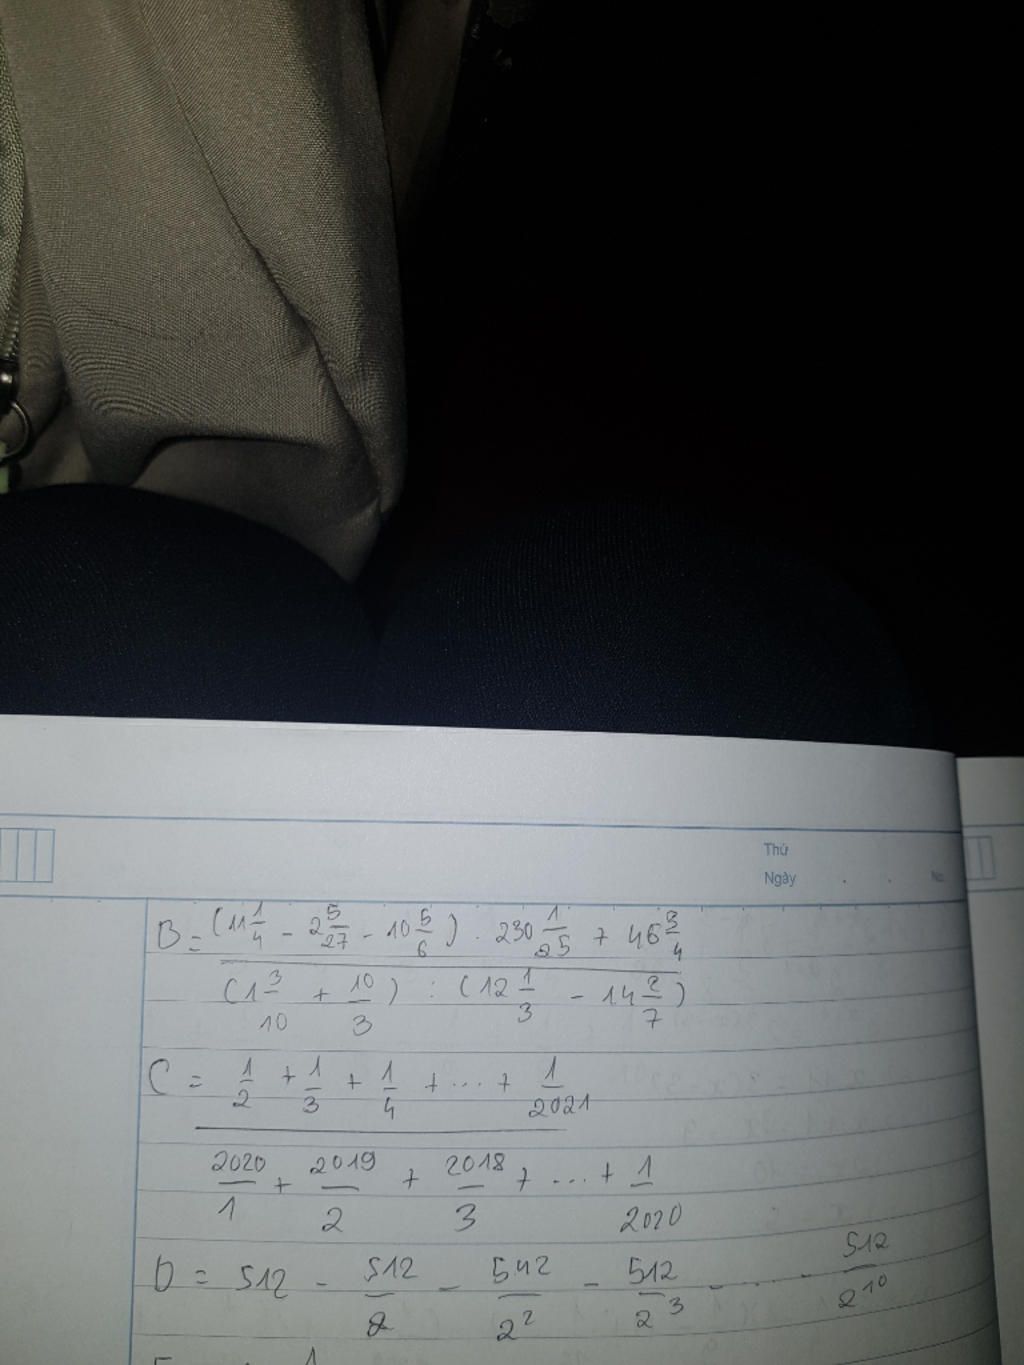 Thứ
Ngày
No.
B = (11 1/4 - 2 5/27 - 10 5/6) . 230 1/25 + 46 3/4
(1 3/10 + 10/3) : (12 1/3 - 14 2/7)
C = 1/2 + 1/3 + 1/4 + ... + 1/2021
2020/1 + 2019/2 + 2018/3 + ... + 1/2020
D = 512 - 512/2 - 512/2^2 - 512/2^3 - ... - 512/2^10